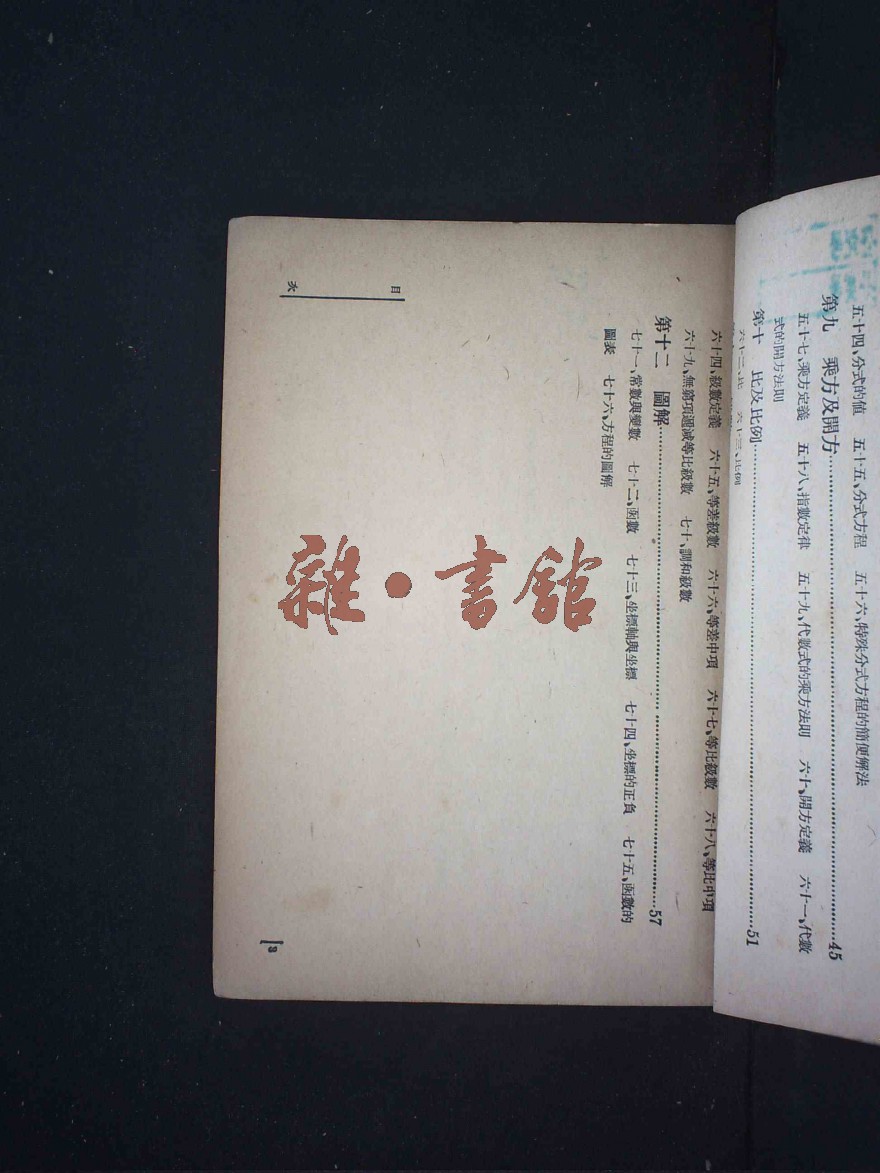 五十四、分式的值　五十五、分式方程　五十六、特殊分式方程的簡便解法
第九　乘方及開方……45
五十七、乘方定義　五十八、指數定律　五十九、代數式的乘方法則　六十、開方定義　六十一、代數
式的開方法則
第十　比及比例……51
六十二、比　六十三、比例
六十四、級數定義　六十五、等差級數　六十六、等差中項　六十七、等比級數　六十八、等比中項
六十九、無窮項遞減等比級數　七十、調和級數
第十二　圖解……57
七十一、常數與變數　七十二、函數　七十三、坐標軸與坐標　七十四、坐標的正負　七十五、函數的
圖表　七十六、方程的圖解
目次
3
雜·書館